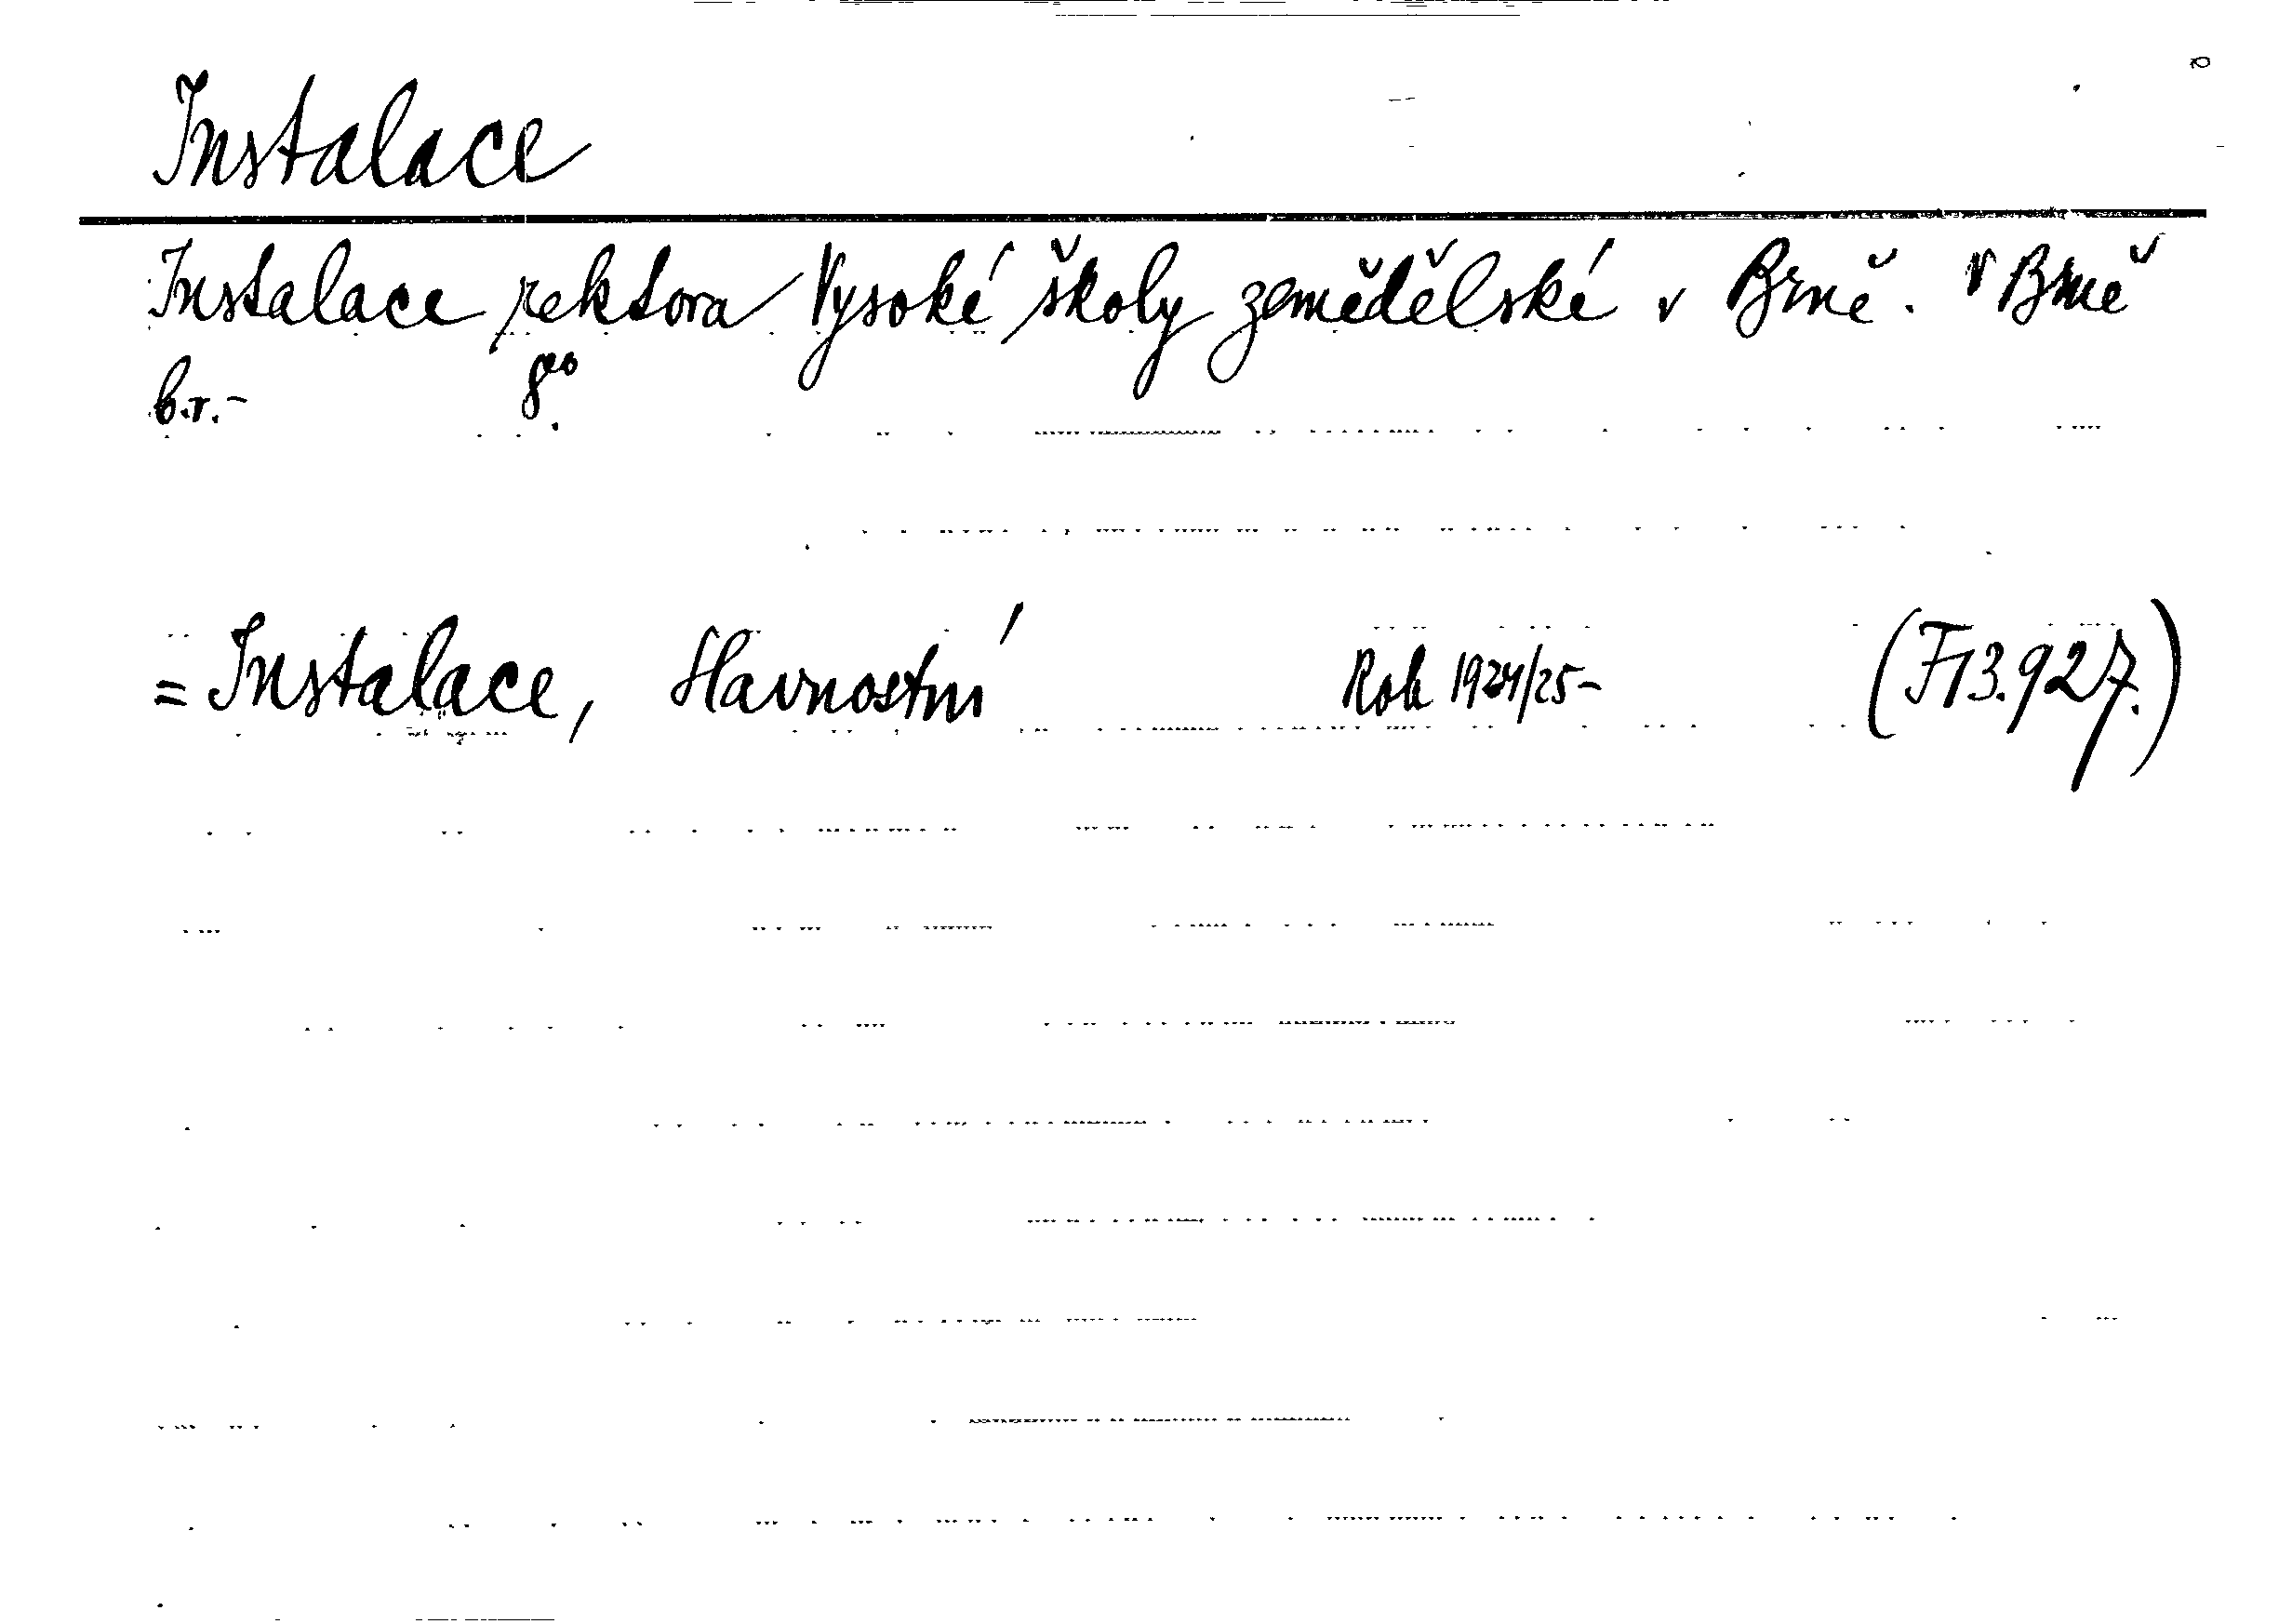 Instalace
Instalace rektora Vysoké školy zemědělské v Brně. V Brně
b.r.- 8°.
= Instalace, Slavnostní Rok 1924/25- (F13.927.)